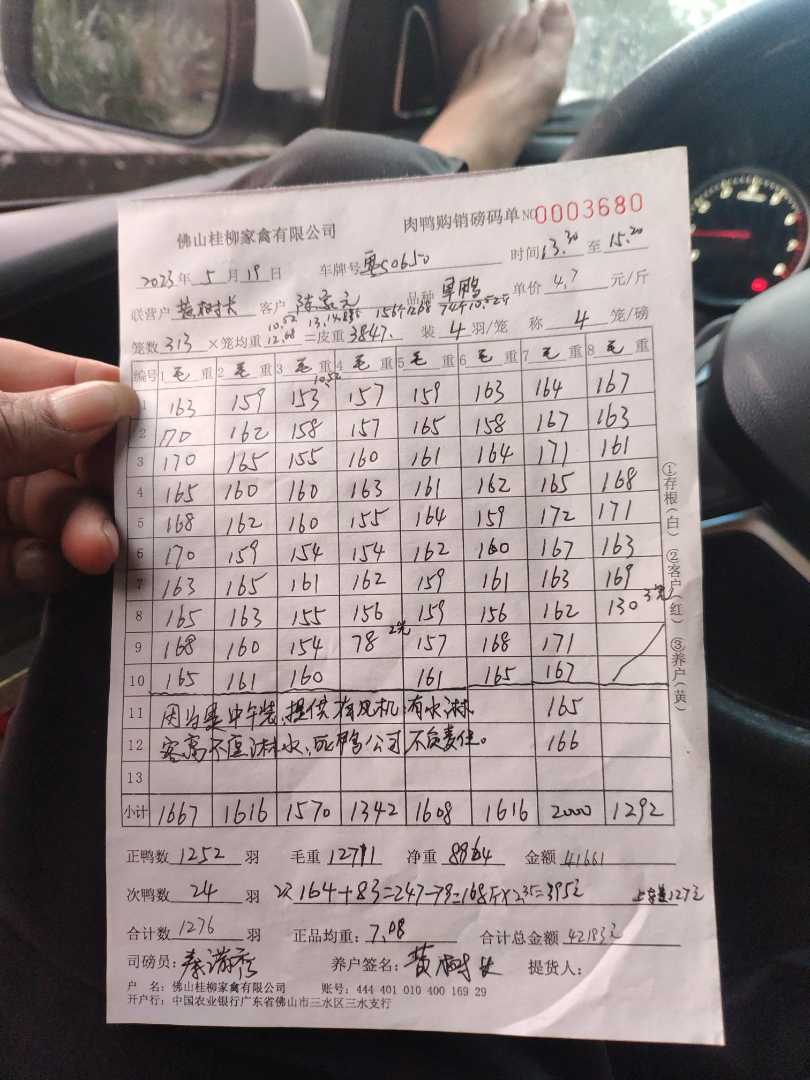 佛山桂柳家禽有限公司 肉鸭购销磅码单 NO 0003680
2023年 5月 19日 车牌号 粤S0650 时间 13.30 至 15.20
联营户 黄树长 客户 品种 单价 4.7 元/斤
10.52 13.14.885 156个12.68 74个10.52斤
笼数 313 ×笼均重 12.68 =皮重 3847. 装 4 羽/笼 称 4 笼/磅
编号 1 毛 重 2 毛 重 3 毛 重 4 毛 重 5 毛 重 6 毛 重 7 毛 重 8 毛 重
10.52
1 163 159 153 157 159 163 164 167
2 170 162 158 157 165 158 167 163
3 170 165 155 160 161 164 171 161
4 165 160 160 163 161 162 165 168
5 168 162 160 155 164 159 172 171
6 170 159 154 154 162 160 167 163
7 163 165 161 162 159 161 163 169
8 165 163 155 156 159 156 162 130 3笼
9 168 160 154 78 2笼 157 168 171
10 165 161 160 161 165 167
11 因为是中午装,提供有风机 有水淋 165
12 客高不应淋水,死鸭公司不负责任。 166
13
小计 1667 1616 1570 1342 1608 1616 2000 1292
正鸭数 1252 羽 毛重 12711 净重 8864 金额 41661
次鸭数 24 羽 次164+83=247-79=168斤×2.35=395元 127元
合计数 1276 羽 正品均重: 7.08 合计总金额 42183元
司磅员: 养户签名: 黄树长 提货人:
户 名: 佛山桂柳家禽有限公司 账号: 444 401 010 400 169 29
开户行: 中国农业银行广东省佛山市三水区三水支行
①存根(白) ②客户(红) ③养户(黄)